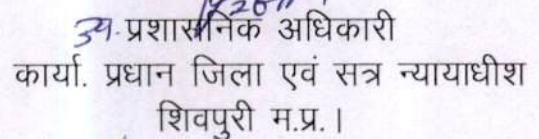 उप. प्रशासनिक अधिकारी
कार्या. प्रधान जिला एवं सत्र न्यायाधीश
शिवपुरी म.प्र.।